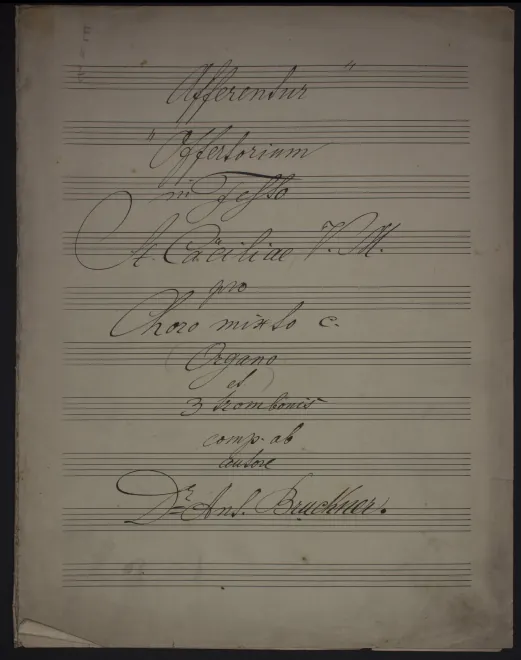 "Afferentur"
"Offertorium
in Festo
St. Cäciliae V. M.
pro
Choro mixto c.
(Organo
et )
3 trombonis
comp. ab
autore
Dr Ant. Bruckner.